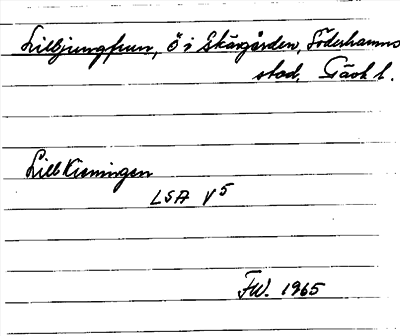 Lilljungfrun, ö i Skärgården, Söderhamns
stad, Gävl l.
Lillkisningen
LSA V5
FW. 1965